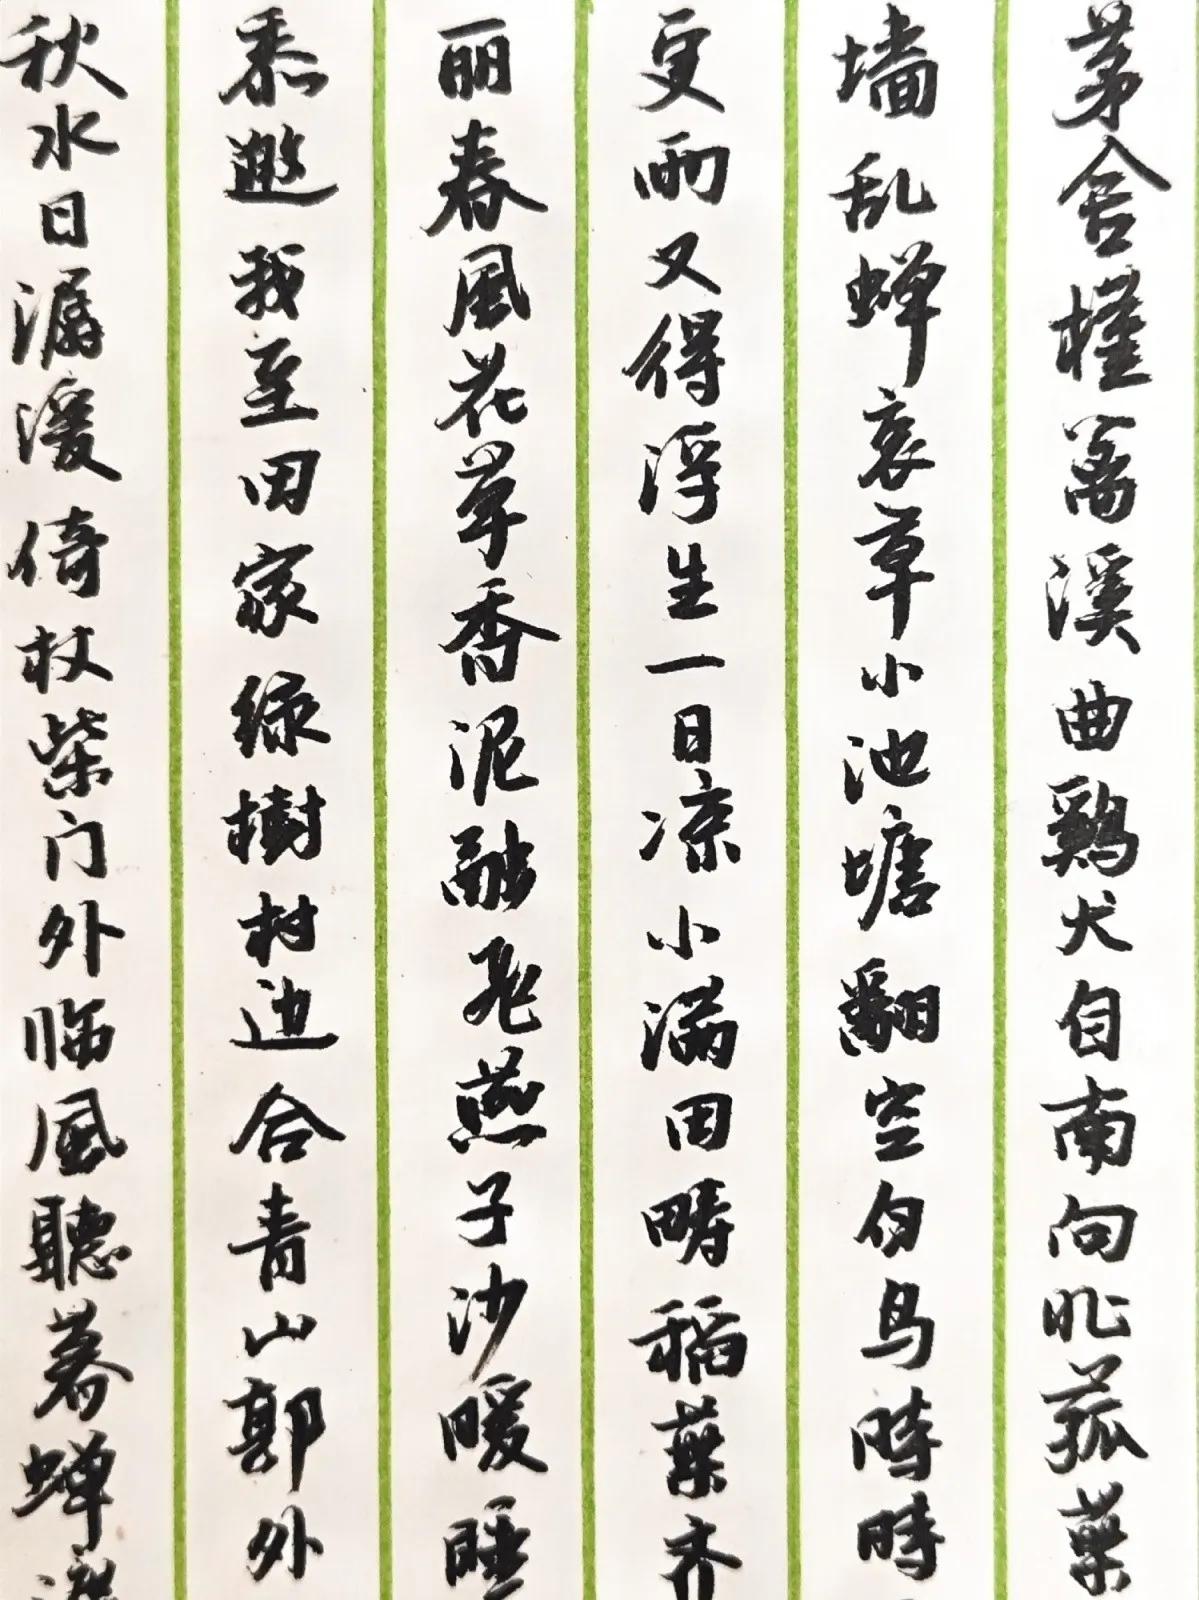 茅舍槿篱溪曲鷄犬自南向北菰葉
墙乱蝉衰草小池塘翻空白鸟時時
更雨又得浮生一日凉小满田畴稻葉齐
丽春風花草香泥融飛燕子沙暖睡
黍邀我至田家绿樹村边合青山郭外
秋水日潺湲倚杖柴门外临風聽暮蝉渡